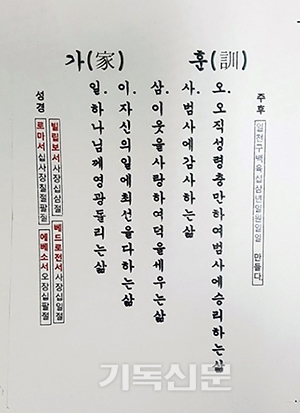 가(家) 훈(訓)
성경
빌립보서사장십삼절
로마서십사장칠절팔절
베드로전서사장십일절
에베소서오장십팔절
일. 하나님께영광돌리는삶
이. 자신의일에최선을다하는삶
삼. 이웃을사랑하여덕을세우는삶
사. 범사에감사하는삶
오. 오직성령충만하여범사에승리하는삶
주후 일천구백육십삼년일월일일 만들다.
기독신문